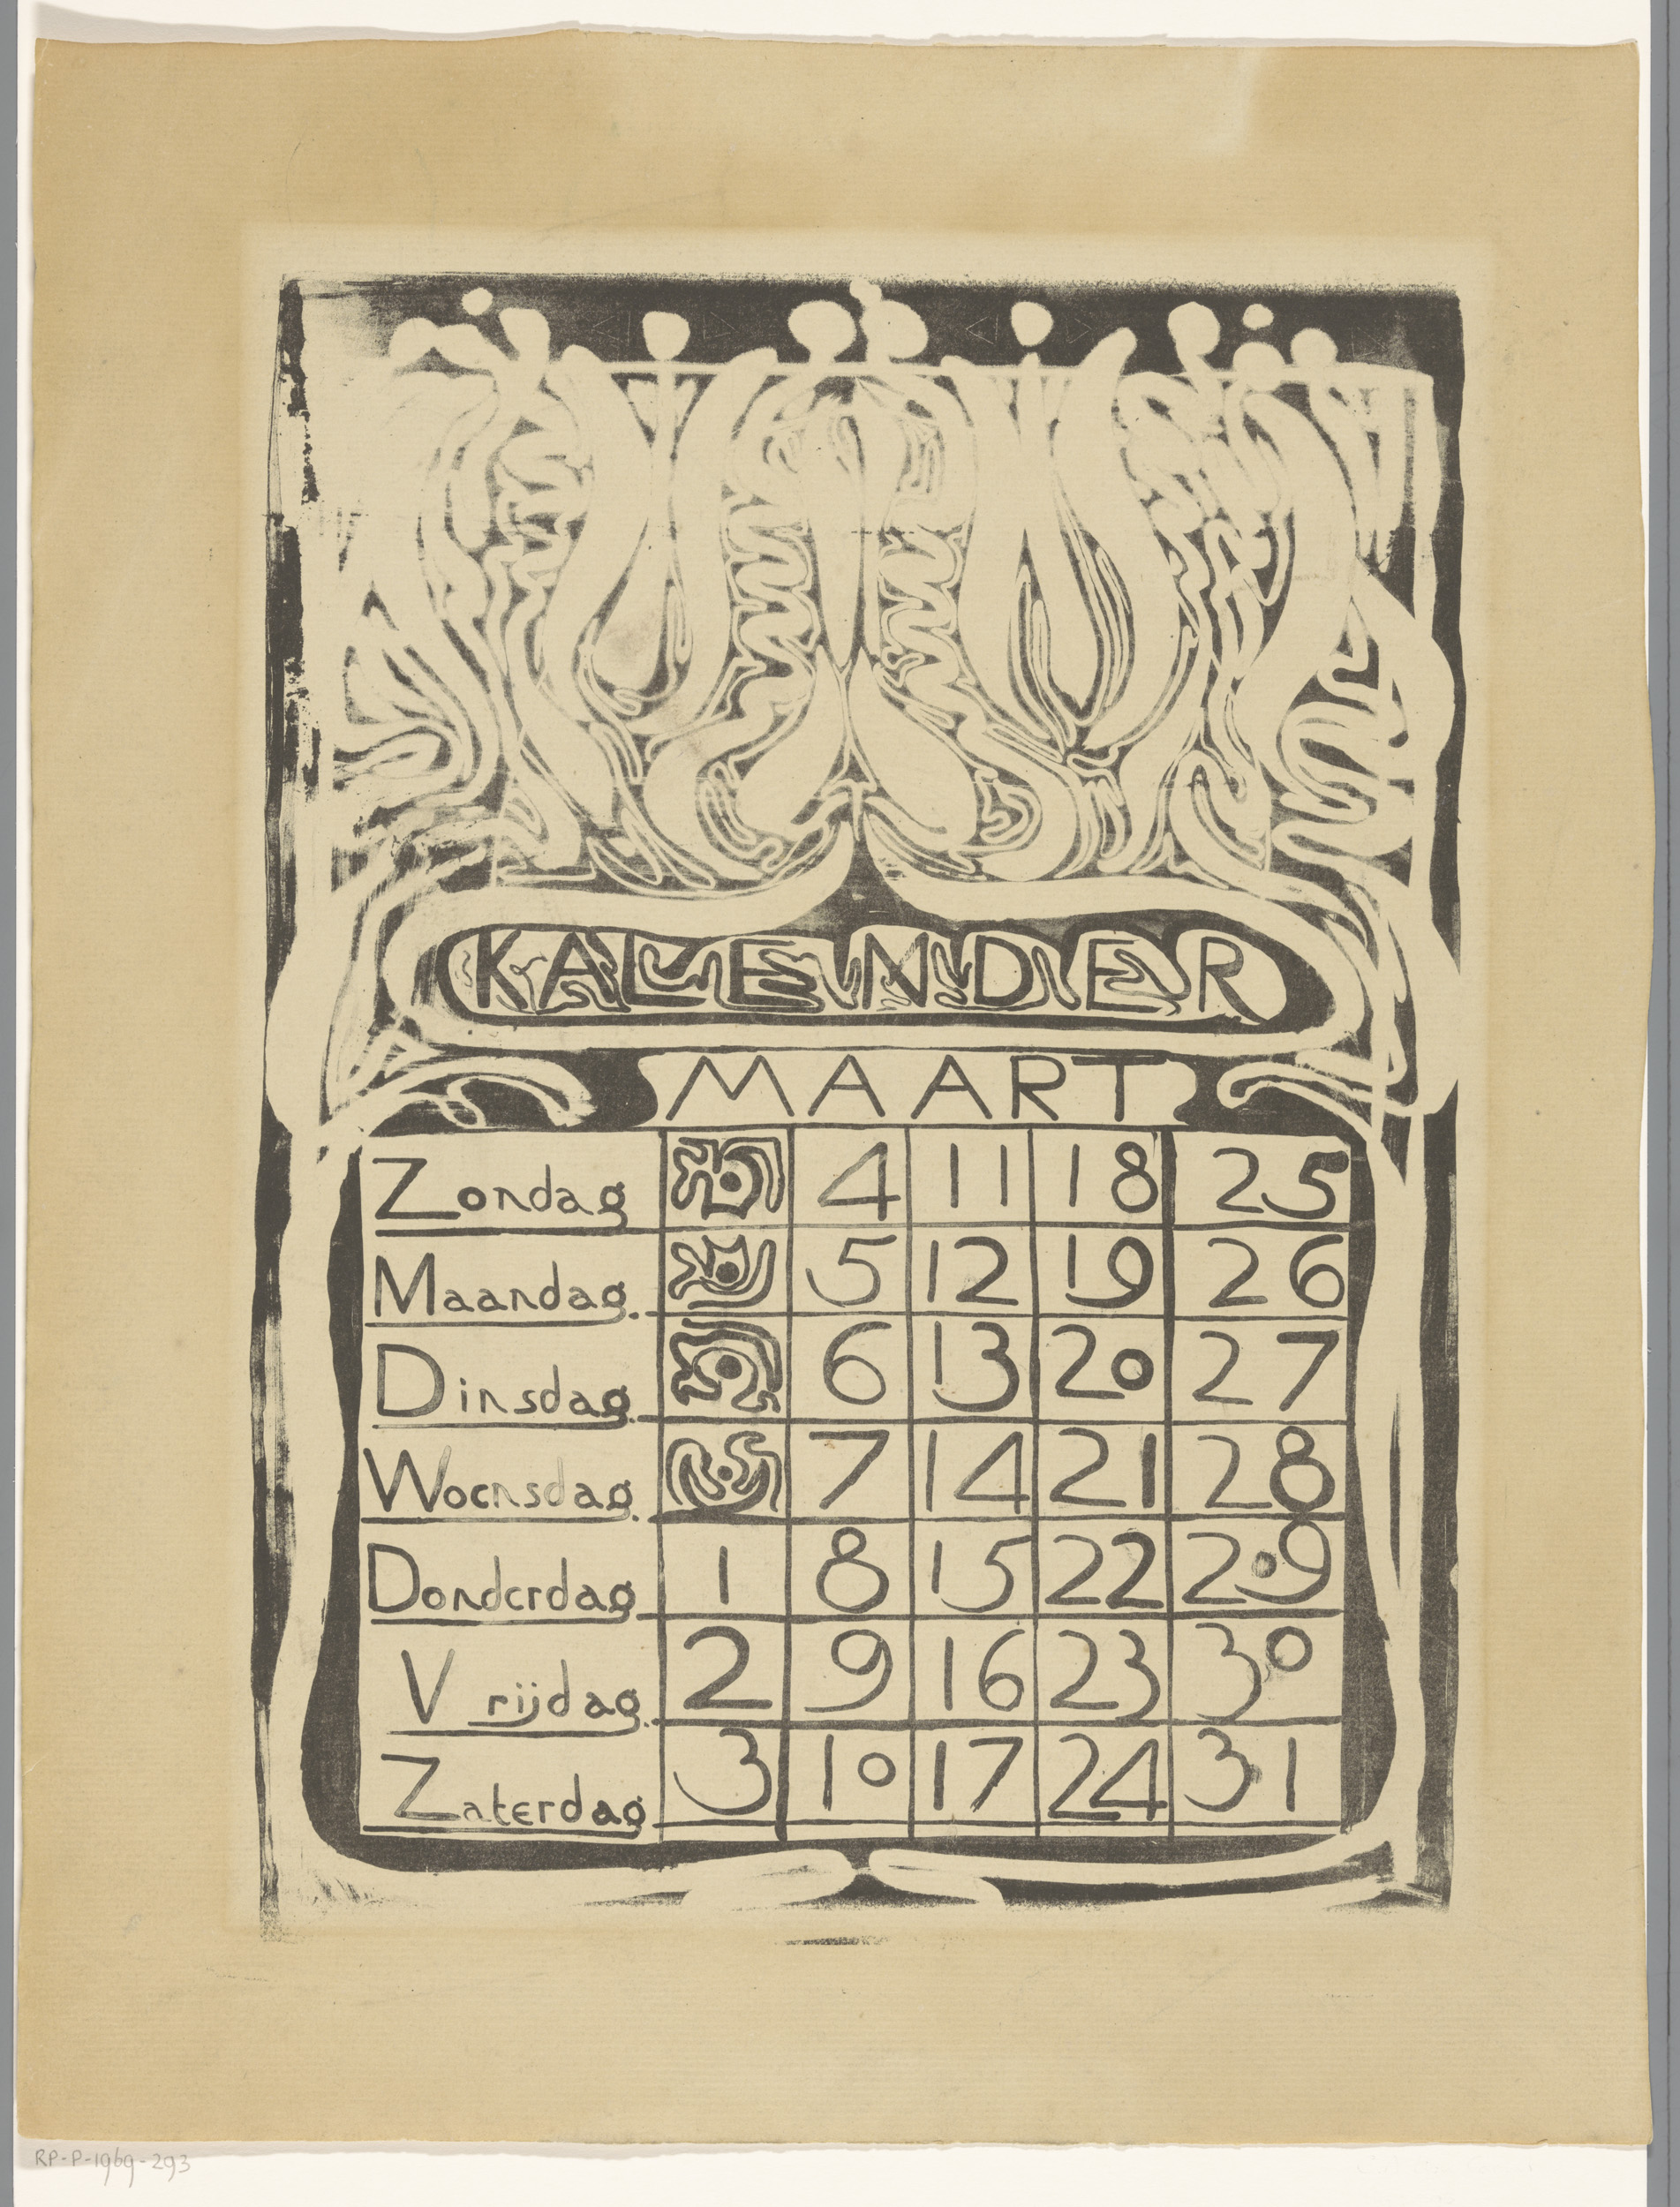 KALENDER
MAART
Zondag 4 11 18 25
Maandag. 5 12 19 26
Dinsdag. 6 13 20 27
Woensdag. 7 14 21 28
Donderdag 1 8 15 22 29
Vrijdag. 2 9 16 23 30
Zaterdag 3 10 17 24 31
RP-P-1969-293